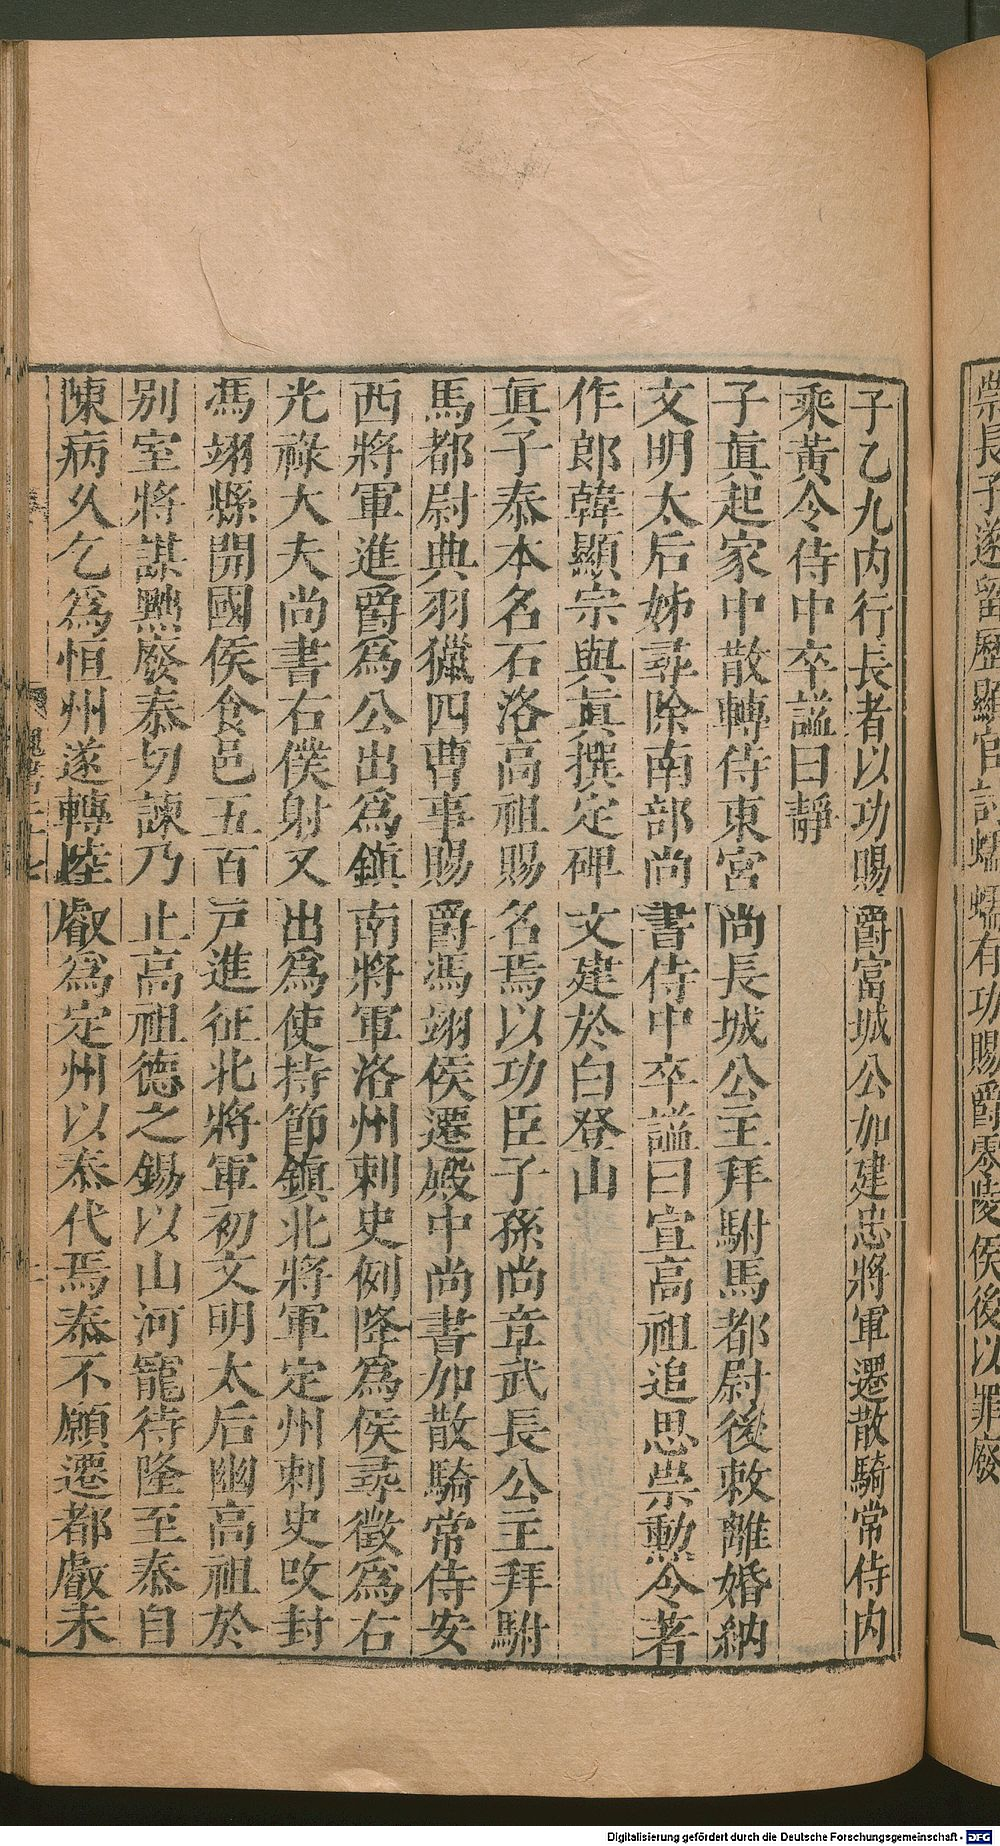 崇長子遂留歷顯官討蠕蠕有功賜爵零陵侯後以罪廢
子乙九內行長者以功賜爵富城公加建忠將軍遷散騎常侍內
乘黃令侍中卒謚曰靜
子眞起家中散轉侍東宮尚長城公主拜駙馬都尉後敕離婚納
文明太后姊尋除南部尚書侍中卒謚曰宣高祖追思崇勳令著
作郎韓顯宗與眞撰定碑文建於白登山
眞子泰本名石洛高祖賜名焉以功臣子孫尚章武長公主拜駙
馬都尉典羽獵四曹事賜爵馮翊侯遷殿中尚書加散騎常侍安
西將軍進爵爲公出爲鎭南將軍洛州刺史例降爲侯尋徵爲右
光祿大夫尚書右僕射又出爲使持節鎭北將軍定州刺史攺封
馮翊縣開國侯食邑五百戸進征北將軍初文明太后幽高祖於
别室將謀黜廢泰切諫乃止高祖德之錫以山河寵待隆至泰自
陳病久乞爲恒州遂轉陸叡爲定州以泰代焉泰不願遷都叡未
Digitalisierung gefördert durch die Deutsche Forschungsgemeinschaft - DFG